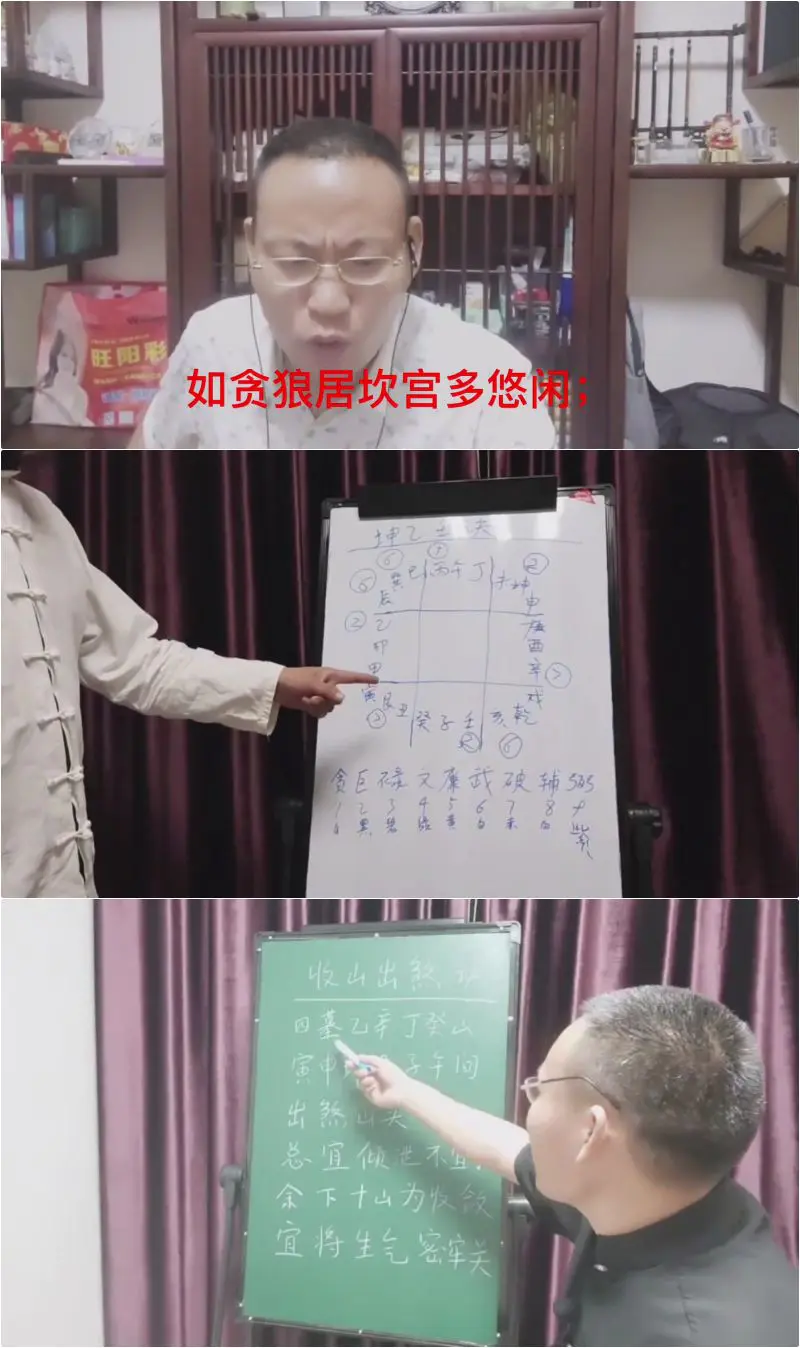 旺阳彩
如贪狼居坎宫多悠闲；
坤乙
⑥
⑤ 巽 巳 丙午丁 未坤 ②
辰 申
② 乙 庚
卯 酉
甲 辛
寅 艮丑 癸子壬 亥乾 戌
贪巨禄文廉武破辅弼
1 2 3 4 5 6 7 8 9
白 黑 碧 绿 黄 白 赤 白 紫
收山出煞
四墓乙辛丁癸山
寅申 子午间
出煞山
总宜倾泄不宜
余下十山为收敛
宜将生气密牢关